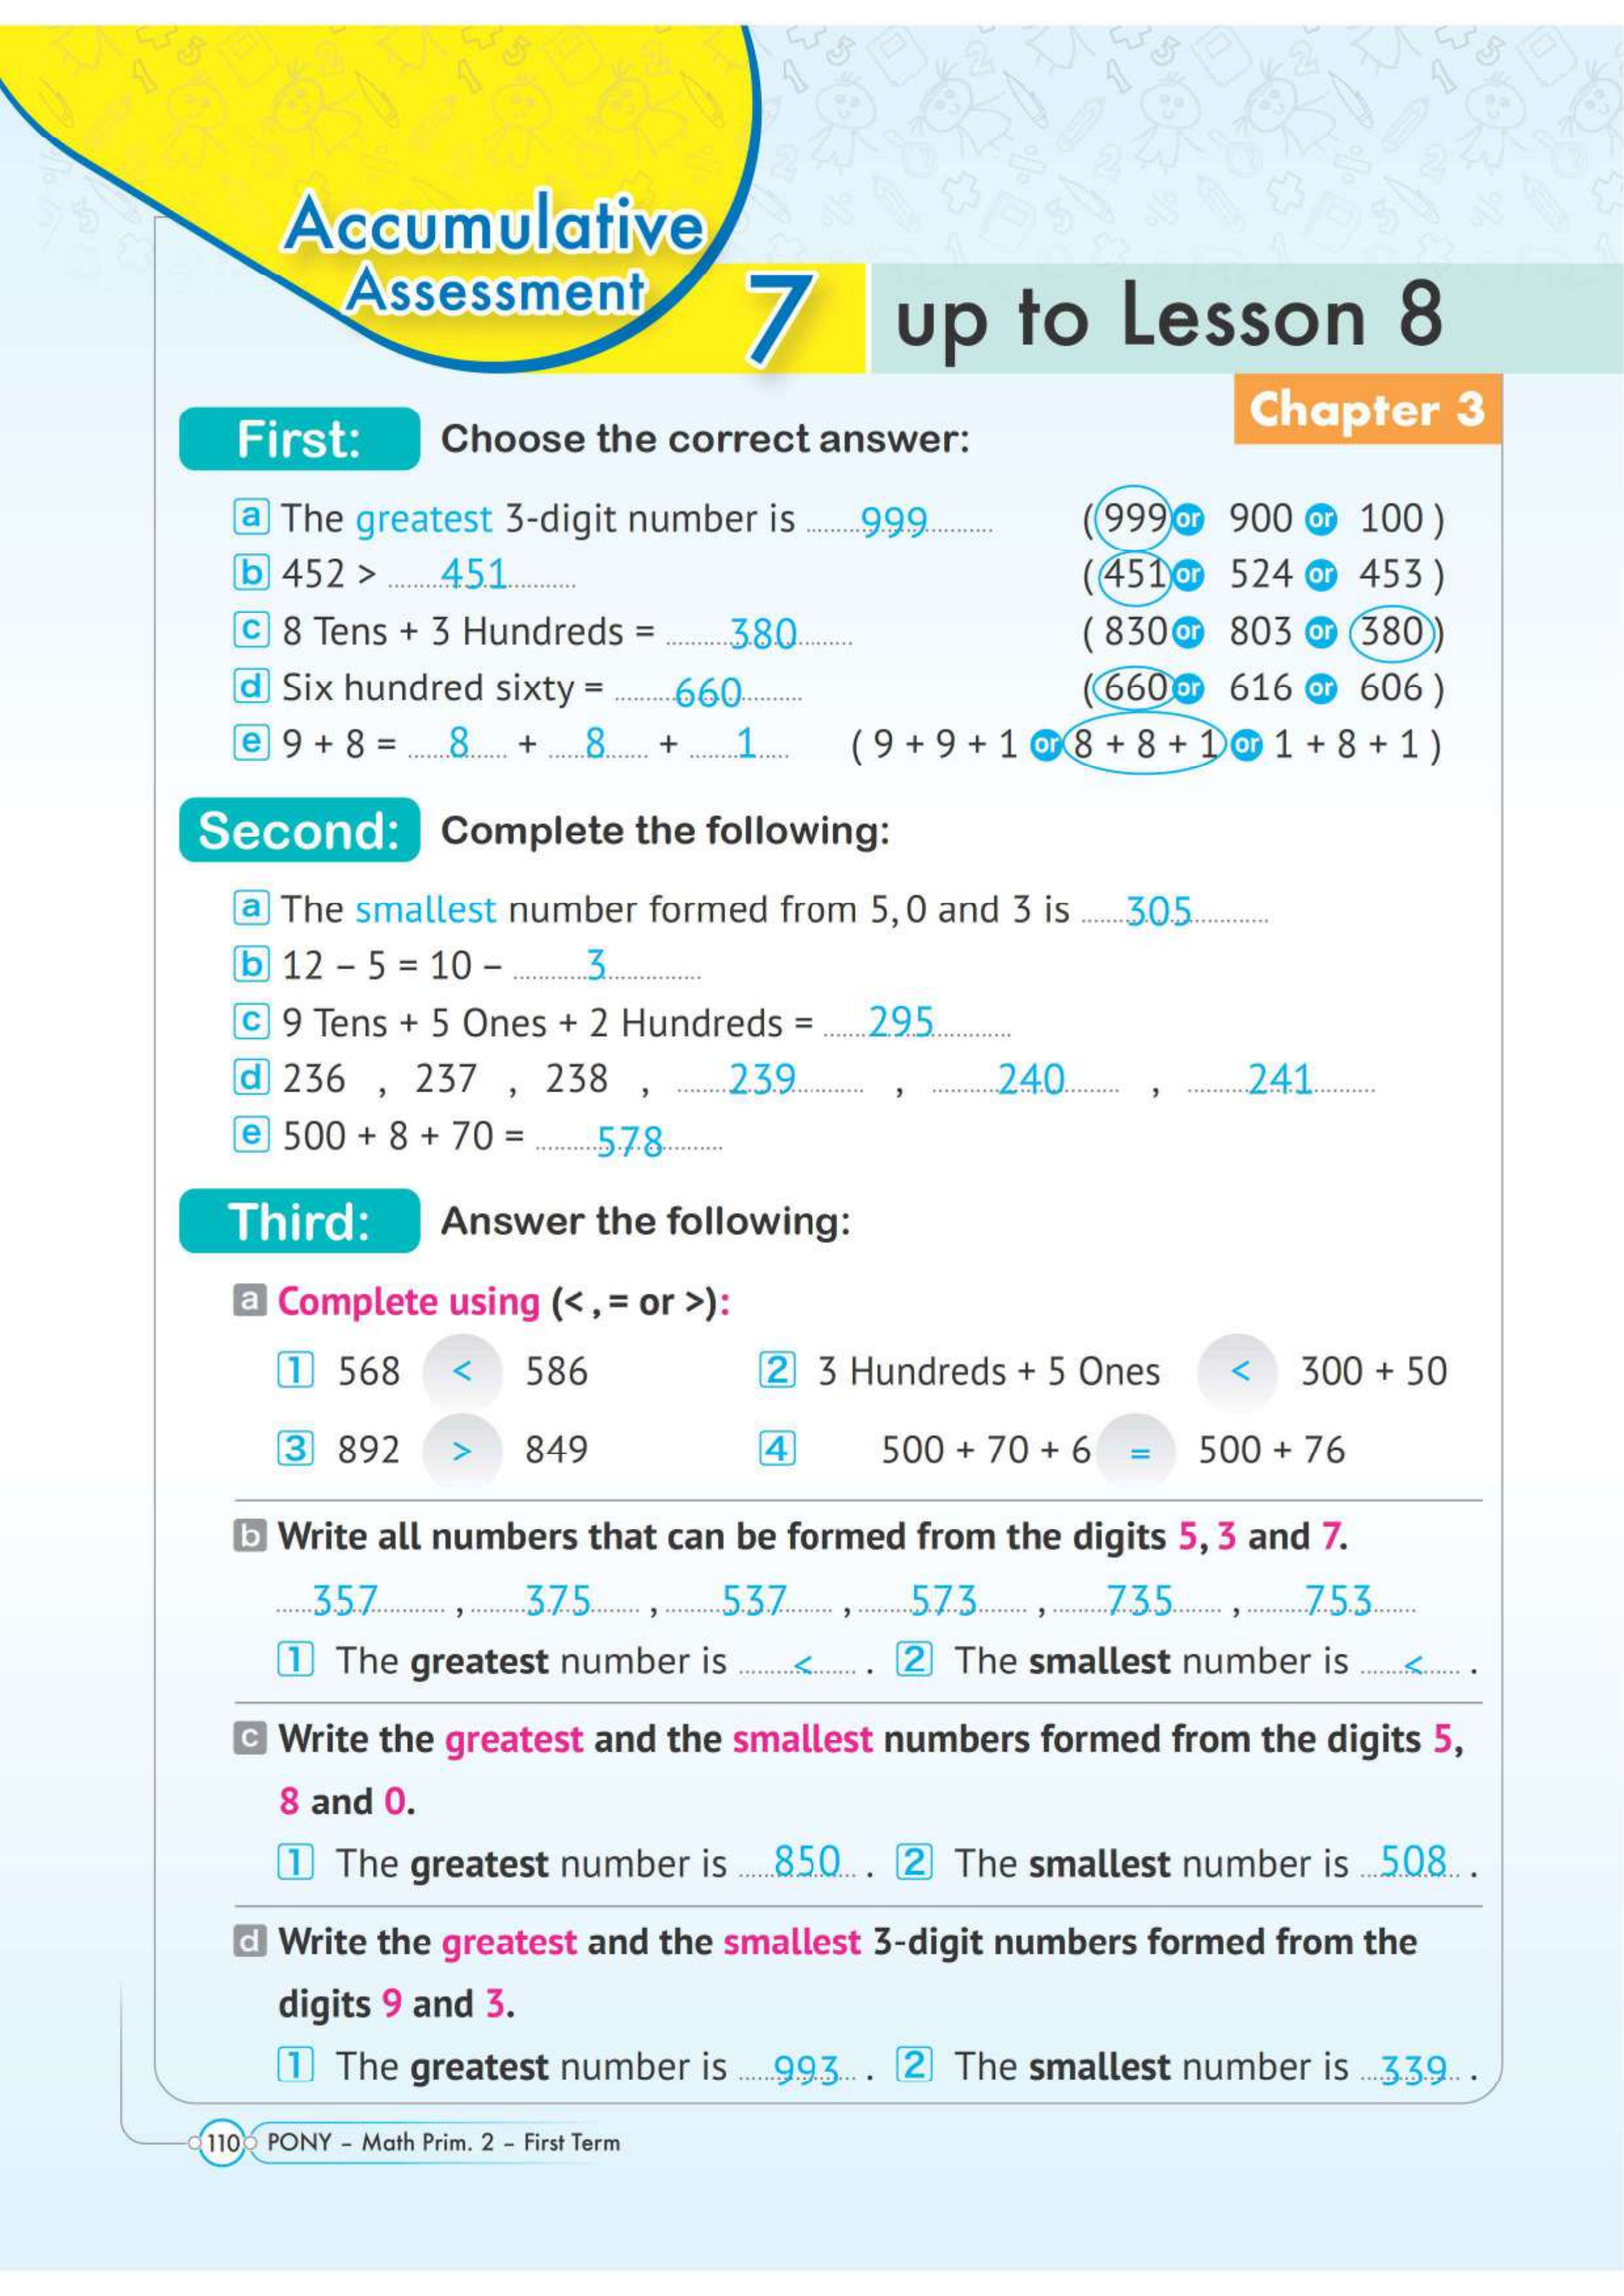 Accumulative
Assessment
7 up to Lesson 8
Chapter 3
First: Choose the correct answer:
a The greatest 3-digit number is 999 (999 or 900 or 100)
b 452 > 451 (451 or 524 or 453)
c 8 Tens + 3 Hundreds = 380 (830 or 803 or 380)
d Six hundred sixty = 660 (660 or 616 or 606)
e 9 + 8 = 8 + 8 + 1 (9 + 9 + 1 or 8 + 8 + 1 or 1 + 8 + 1)
Second: Complete the following:
a The smallest number formed from 5, 0 and 3 is 305
b 12 – 5 = 10 – 3
c 9 Tens + 5 Ones + 2 Hundreds = 295
d 236 , 237 , 238 , 239 , 240 , 241
e 500 + 8 + 70 = 578
Third: Answer the following:
a Complete using (< , = or >):
1 568 < 586 2 3 Hundreds + 5 Ones < 300 + 50
3 892 > 849 4 500 + 70 + 6 = 500 + 76
b Write all numbers that can be formed from the digits 5, 3 and 7.
357 , 375 , 537 , 573 , 735 , 753
1 The greatest number is < . 2 The smallest number is < .
c Write the greatest and the smallest numbers formed from the digits 5,
8 and 0.
1 The greatest number is 850 . 2 The smallest number is 508 .
d Write the greatest and the smallest 3-digit numbers formed from the
digits 9 and 3.
1 The greatest number is 993 . 2 The smallest number is 339 .
110 PONY – Math Prim. 2 – First Term